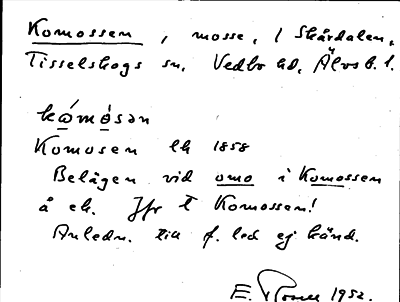 Komossen, mosse, i Skårdalen,
Tisselskogs sn, Vedbo hd, Älvsb. l.
kὼmɷ̀sən
Komosen ek 1858
Belägen vid omo i Komossen
å ek. Jfr t Komossen!
Anledn. till f. led ej känd.
E. 1952.